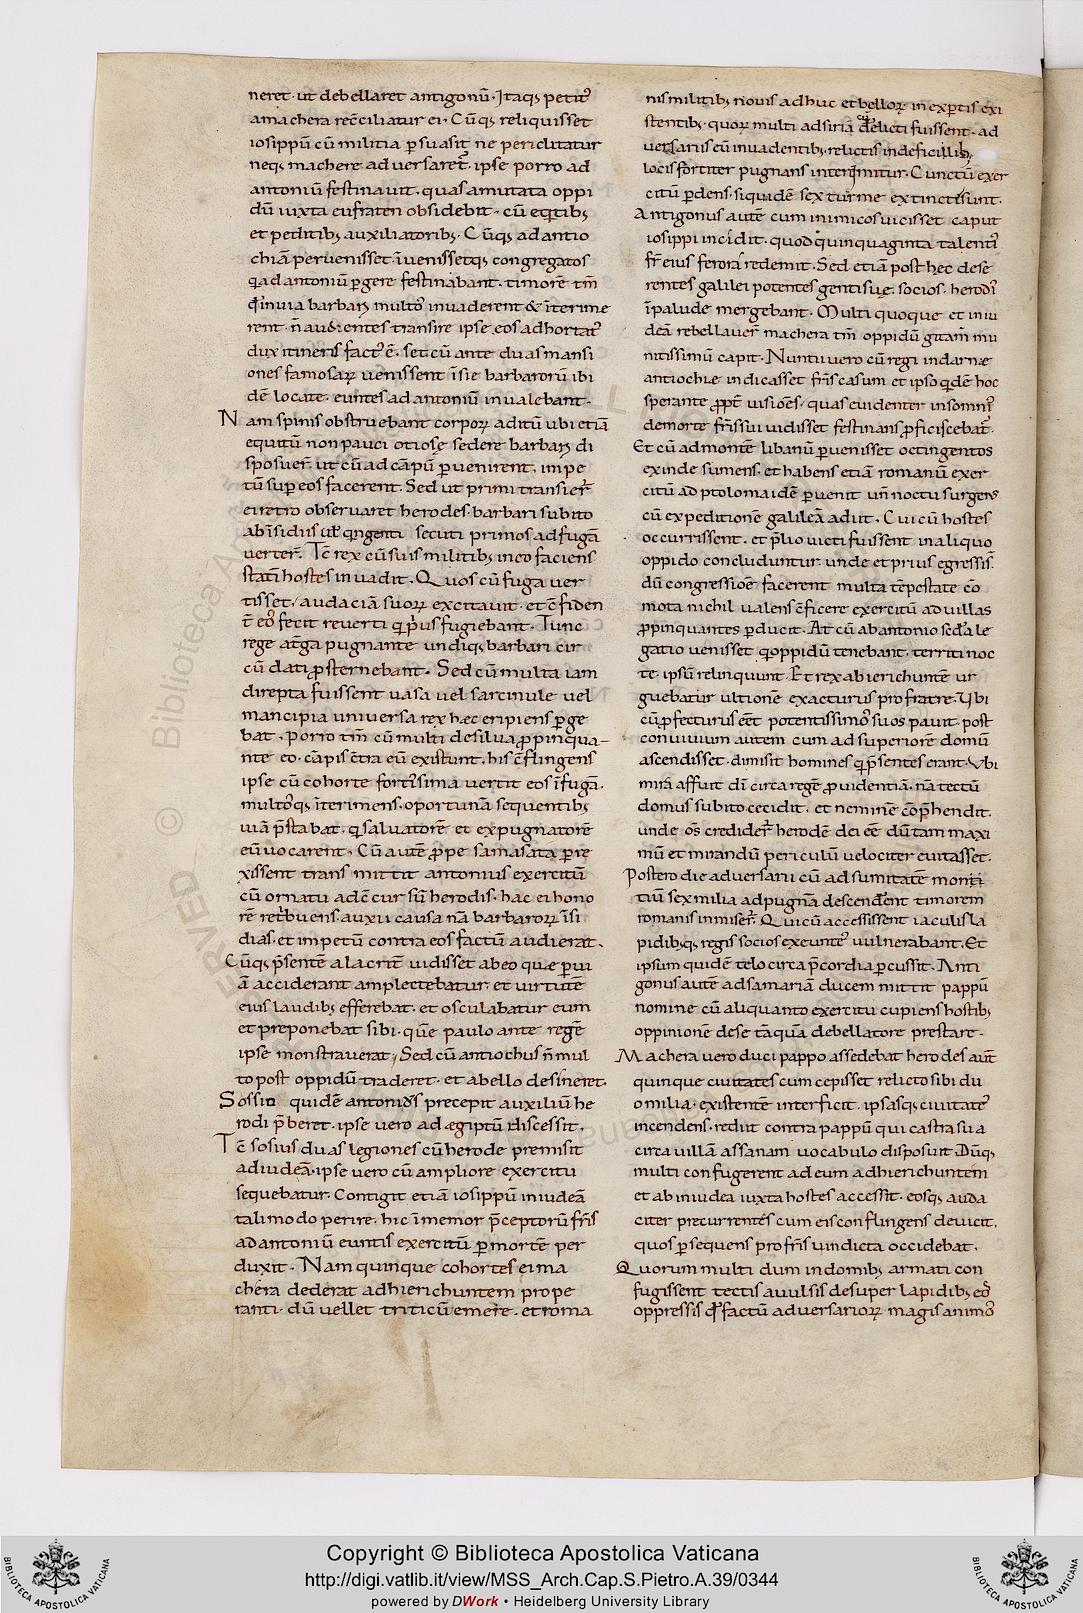 neret· ut debellaret antigonū· Itaqꝫ petit᷒
amachera recc̄iliatur ei· Cūqꝫ reliquisset
iosippū cū militia ꝑsuasit ne periclitatur
neqꝫ machere adversaret᷑· ipse porro ad
antoniū festinauit· quas amutata oppi
dū iuxta eufraten obsidebat· cū eqtibꝫ
et peditibꝫ auxiliatoribꝫ· Cūqꝫ ad antio
chiā peruenisset inuenissetqꝫ congregatos
q̇ adantoniū ꝑgere festinabant· timorē tm̄
q̄ inuia barbarꝫ multo᷒ inuaderent & īterime
rent· n̄ audientes transire ipse eos adhortat᷒
dux itineris fact᷒ ē· set cū ante duas mansi
ones famosaꝝ uenissent īsie barbarorū ibi
dē locate· euntes ad antoniū inualebant·
Nam spinis obstruebant corpoꝝ aditū ubi etiā
equitū non pauci otiosę sedere barbarꝫ di
sposuer̄· ut cū ad cāpū ꝑuenirent, impe
tū suꝑ eos facerent· Sed ut primi transier̄
ei retro obseruaret herodes· barbari subito
ab īsidiis ut̄ qingenti secuti primos ad fugā
uerter̄· Tc̄ rex cū suis militibꝫ in eo faciens
statī hostes inuadit· Quos cū fuga uer
tisset, audaciā suoꝝ excitauit· et c̄fiden
t̄ eo᷒ fecit reuerti q̇ p̄us fugiebant· Tunc
rege at̄ga pugnante undiqꝫ barbari cir
cū dati ꝓsternebant· Sed cū multa iam
direpta fuissent uasa uel sarcinule uel
mancipia uniuersa rex hæc eripiens ꝑge
bat· porro tm̄ cū multi de silua ꝓpinqua-
nte eo· cāpis c̄tra eū existunt· his c̄fligens
ipse cū cohorte fortissima uertit eos ī fugā·
multo᷒qꝫ īterimens· oportunā sequentibꝫ
uiā p̄stabat· q̇ saluatorē et expugnatorē
eū uocarent, Cū autē ꝓpe samasata ꝑre
xissent transmittit antonius exercitū
cū ornatu ad c̄cursū herodis· hac ei hono
rē ret̄buens· auxii causa nā barbaroꝝ īsi
dias· et impetū contra eos factū audierat·
Cūqꝫ p̄sentē alacrit̄ uidisset ab eo quæ ꝑui
ā acciderant amplectebatur· et uirtutē
eius laudibꝫ efferebat· et osculabatur eum
et preponebat sibi· quē paulo ante regē
ipse monstrauerat, Sed cū antiochus n̄ mul
to post oppidū traderet· et abello desineret·
Sossio quidē antonius precepit auxiliū he
rodi p̄beret· ipse uero ad ægiptū discessit·
Tc̄ sosius duas legiones cū herode premisit
ad iudeā· ipse uero cū ampliore exercitu
sequebatur· Contigit etiā iosippū in iudeā
tali modo perire· hic īmemor p̄ceptorū fr̄is
ad antoniū euntis exercitū ꝑ mortē per
duxit· Nam quinque cohortes ei ma
chera dederat ad hierichuntem prope
ranti· dū uellet triticū emere· et roma
nis militibꝫ nouis adhuc et belloꝝ in exꝑtis exi
stentibꝫ· quoꝝ multi adsiria delicti fuissent· ad
uersariis eū inuadentibꝫ, relictis in deficillibꝫ
locis fortiter pugnans interimitur· Cunctū exer
citū ꝑdens· siquidē sex turme extinctę sunt·
Antigonus autē cum inimicos uicisset caput
iosippi incidit· quod quinquaginta talenti᷒
fr̄ eius ferora redemit· Sed etiā post hec dese
rentes galilei potentes gentis suę· socios· herodi᷒
ī palude mergebant· Multi quoque et in iu
deā rebellauer̄ machera tm̄ oppidū gitam mu
nitissimū capit· Nuntii uero cū regi in darnæ
antiochiæ indicasset fr̄is casum et ipso qdē hoc
sperante ꝓpt̄ uisiōes· quas euidenter insomni᷒
demorte fr̄is sui uidisset festinans ꝓficiscebat᷑·
Et cū admontē libanū ꝑuenisset octingentos
exinde sumens· et habens etiā romanū exer
citū ad ptolomaidē ꝑuenit un̄ noctu surgens
cū expeditione galileā adiit· Cui cū hostes
occurrissent· et p̄lio uicti fuissent in aliquo
oppido concluduntur· unde et prius egressis᷒
dū congressiōē facerent multa tēpestate cō
mota nichil ualens c̄ficere exercitū ad uillas
ꝓpinquantes ꝑducit· At cū abantonio sed̄a le
gatio uenisset q̇ oppidū tenebant· territi noc
te· ipsū relinquunt· Et rex ab ierichuntē ur
guebatur ultionē exacturus pro fratre· Ubi
cū ꝓfecturus eēt potentissimo᷒ suos pauit· post
conuiuium autem cum ad superiorē domū
ascendisset· dimisit homines q̇ p̄sentes erant· Ubi
mirā affuit dī circa regē ꝓuidentiā· nā tectū
domus subito cecidit· et neminē cōp̄hendit·
unde oēs credider̄ herodē dei eē dū tam maxi
mū et mirandū periculū uelociter euitasset·
Postero die aduersarii cū ad sumitatē monti
tiū sex milia ad pugnā descendunt timorem
romanis inmiser̄· Qui cū accessissent iaculis la
pidibꝫqꝫ regis socios exeunte᷒ uulnerabant· Et
ipsum quidē telo circa p̄cordia ꝑcussit· Anti
gonus autē ad samariā ducem mittit pappū
nomine cū aliquanto exercitu cupiens hostibꝫ
oppinionē de se tāquā debellatore prestare·
Machera uero duci pappo assedebat herodes aut̄
quinque ciuitates cum cepisset relicto sibi du
o milia· existentē interficit· ipsasqꝫ ciuitate᷒
incendens· rediit contra pappū qui castra sua
circa uillā assanam uocabulo disposuit· Dūqꝫ
multi confugerent ad eum ad hierichuntem
et ab iniudea iuxta hostes accessit· eosqꝫ auda
citer precurrentes cum eis confligens deuicit·
quos ꝑsequens pro fr̄is uindicta occidebat·
Quorum multi dum in domibꝫ armati con
fugissent tectis auulsis desuper lapidibꝫ eo᷒
oppressis q̄ factū aduersarioꝝ magis animo᷒
© Biblioteca Apostolica Vaticana ALL RIGHTS RESERVED
Copyright © Biblioteca Apostolica Vaticana
http://digi.vatlib.it/view/MSS_Arch.Cap.S.Pietro.A.39/0344
powered by DWork • Heidelberg University Library
BIBLIOTECA APOSTOLICA VATICANA
BIBLIOTECA APOSTOLICA VATICANA